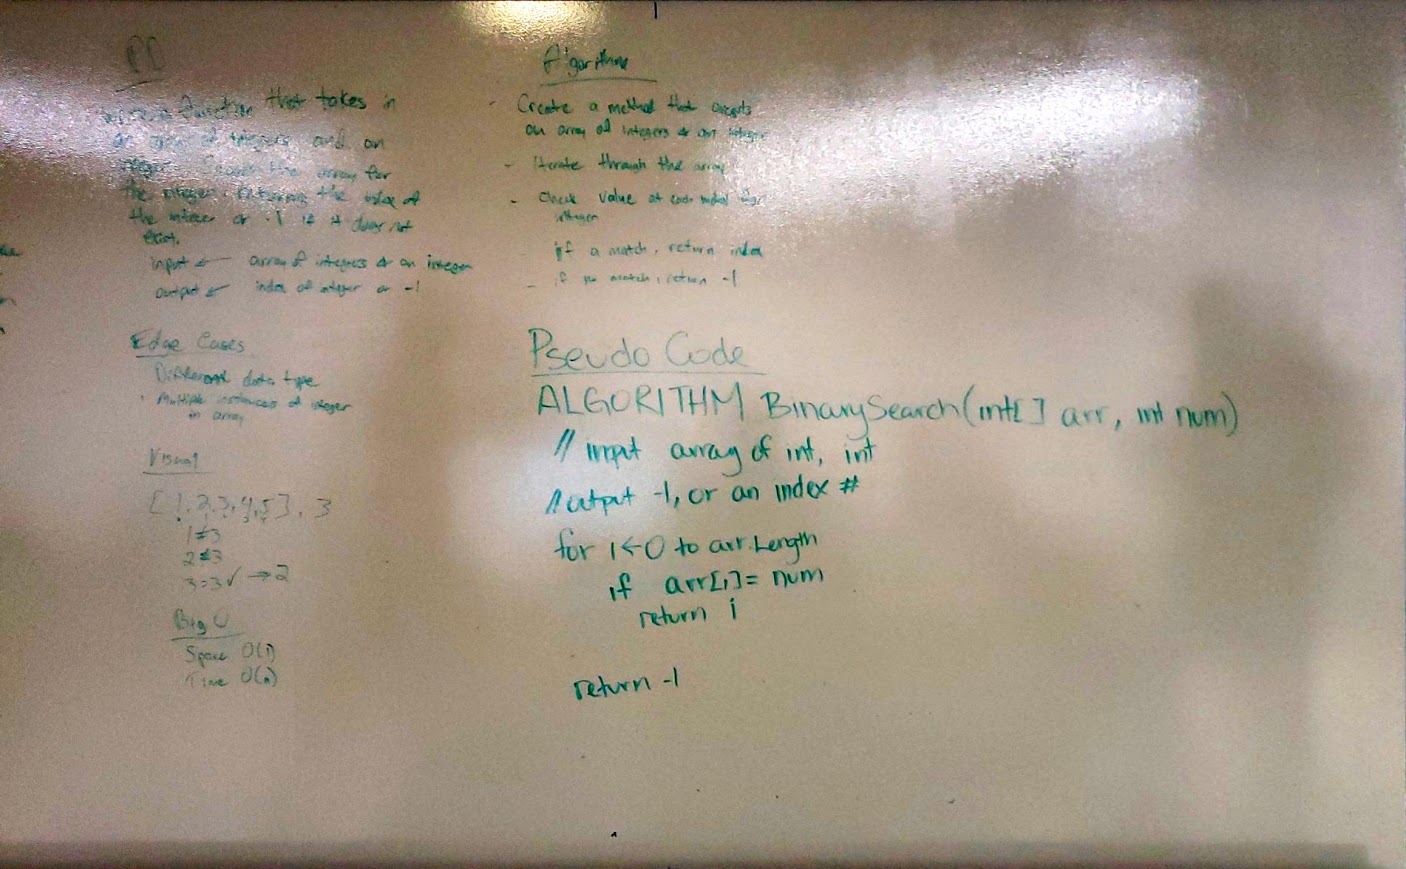 PD
function that takes in
an array of integers and an
integer. the array for
the integer, returning the index of
the integer or -1 if it does not
exist.
input ← array of integers & an integer
output ← index of integer or -1
Edge Cases
Different data type
Multiple instances of integer
in array
Visual
[1,2,3,4,5], 3
1≠3
2≠3
3=3✓ → 2
Big O
Space O(1)
Time O(n)
Algorithm
- Create a method that accepts
an array of integers & an integer
- Iterate through the array
- Check value at each index
integer
if a match, return index
- if no match, return -1
Pseudo Code
ALGORITHM BinarySearch(int[] arr, int num)
// input array of int, int
// output -1, or an index #
for i←0 to arr.Length
if arr[i]= num
return i
return -1